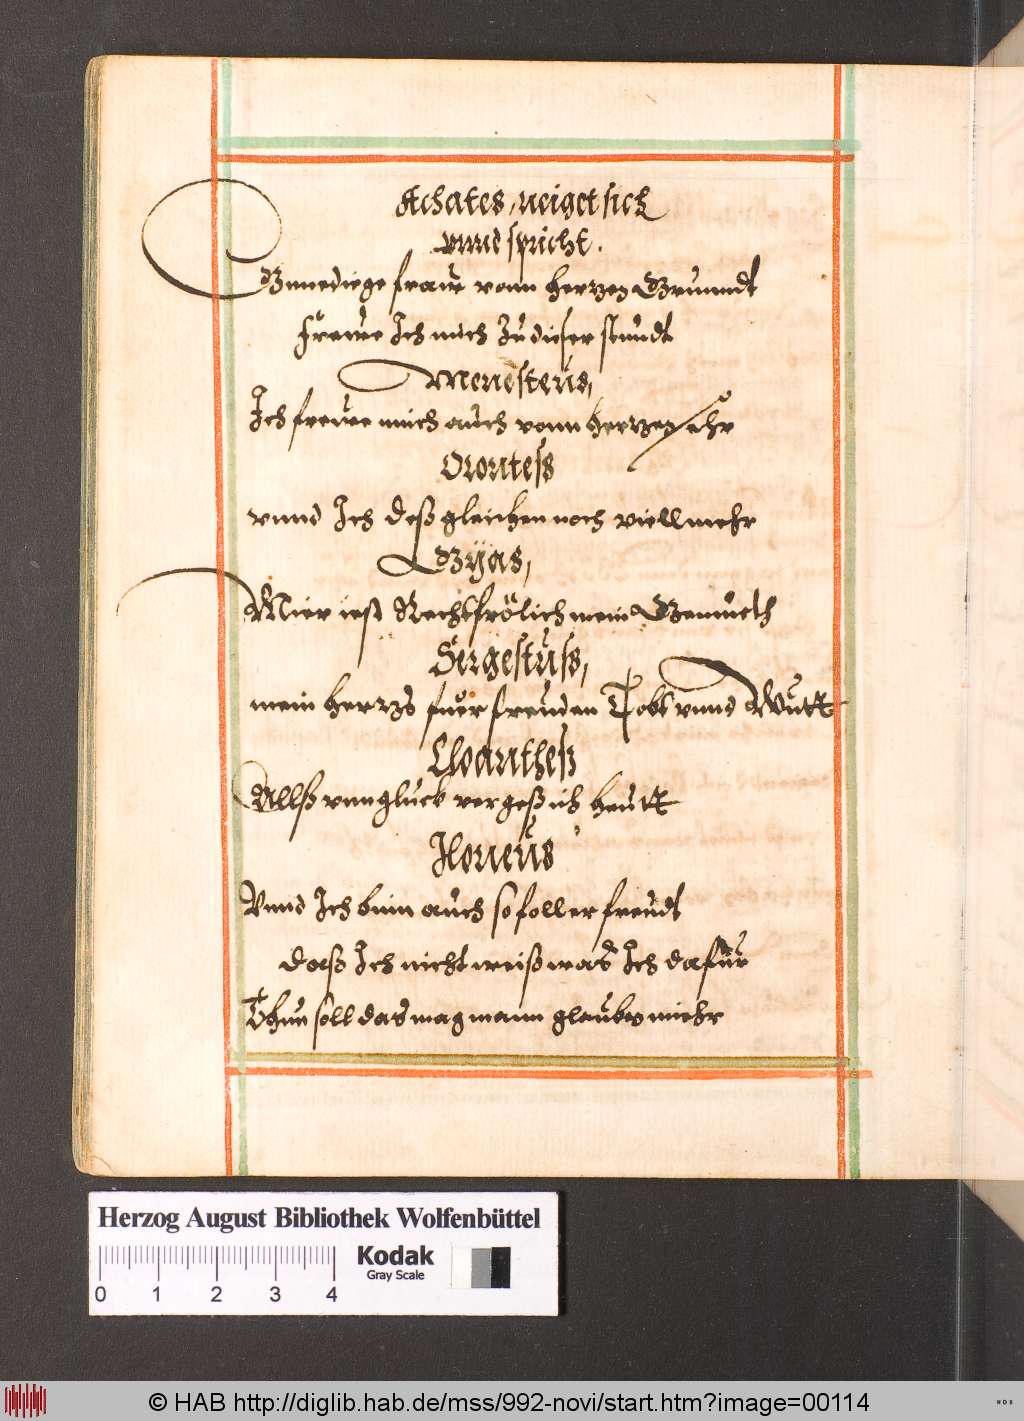 Achates, neiget sich
vnnd spricht.
Gnnediege fraüw vonn hertzen Grunndt
freüwe Ich mich zu dieser stundt
Menesteus,
Ich freuwe mich auch vonn hertzen ihr
Orontess
vnnd Ich deß gleichen noch viell mehr
Gÿas,
Mier iest Recht frölich mein Gemueth
Sergestuss,
mein hertz fuer freuden Tobt vnnd Wutt
Cloantheß
Allß vnngluck vergeß ich heutt
Iloneus
Vnnd Ich binn auch so foller freudt
daß Ich nicht weiß was Ich dafuer
Thun soll das mag mann glauben miehr
Herzog August Bibliothek Wolfenbüttel
Kodak
Gray Scale
0 1 2 3 4
© HAB http://diglib.hab.de/mss/992-novi/start.htm?image=00114